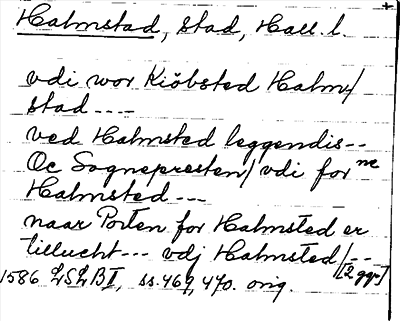 Halmstad, stad, Hall. l.
vdi wor Kiöbsted Halm/
stad ----
ved Halmsted leggendis--
Oc Sognepresten/ vdi for ne
Halmsted ---
naar Porten for Halmsted er
tillucht --- vdj Halmsted/--
[2 ggr]
1586 LSLB I, ss. 469, 470. orig.